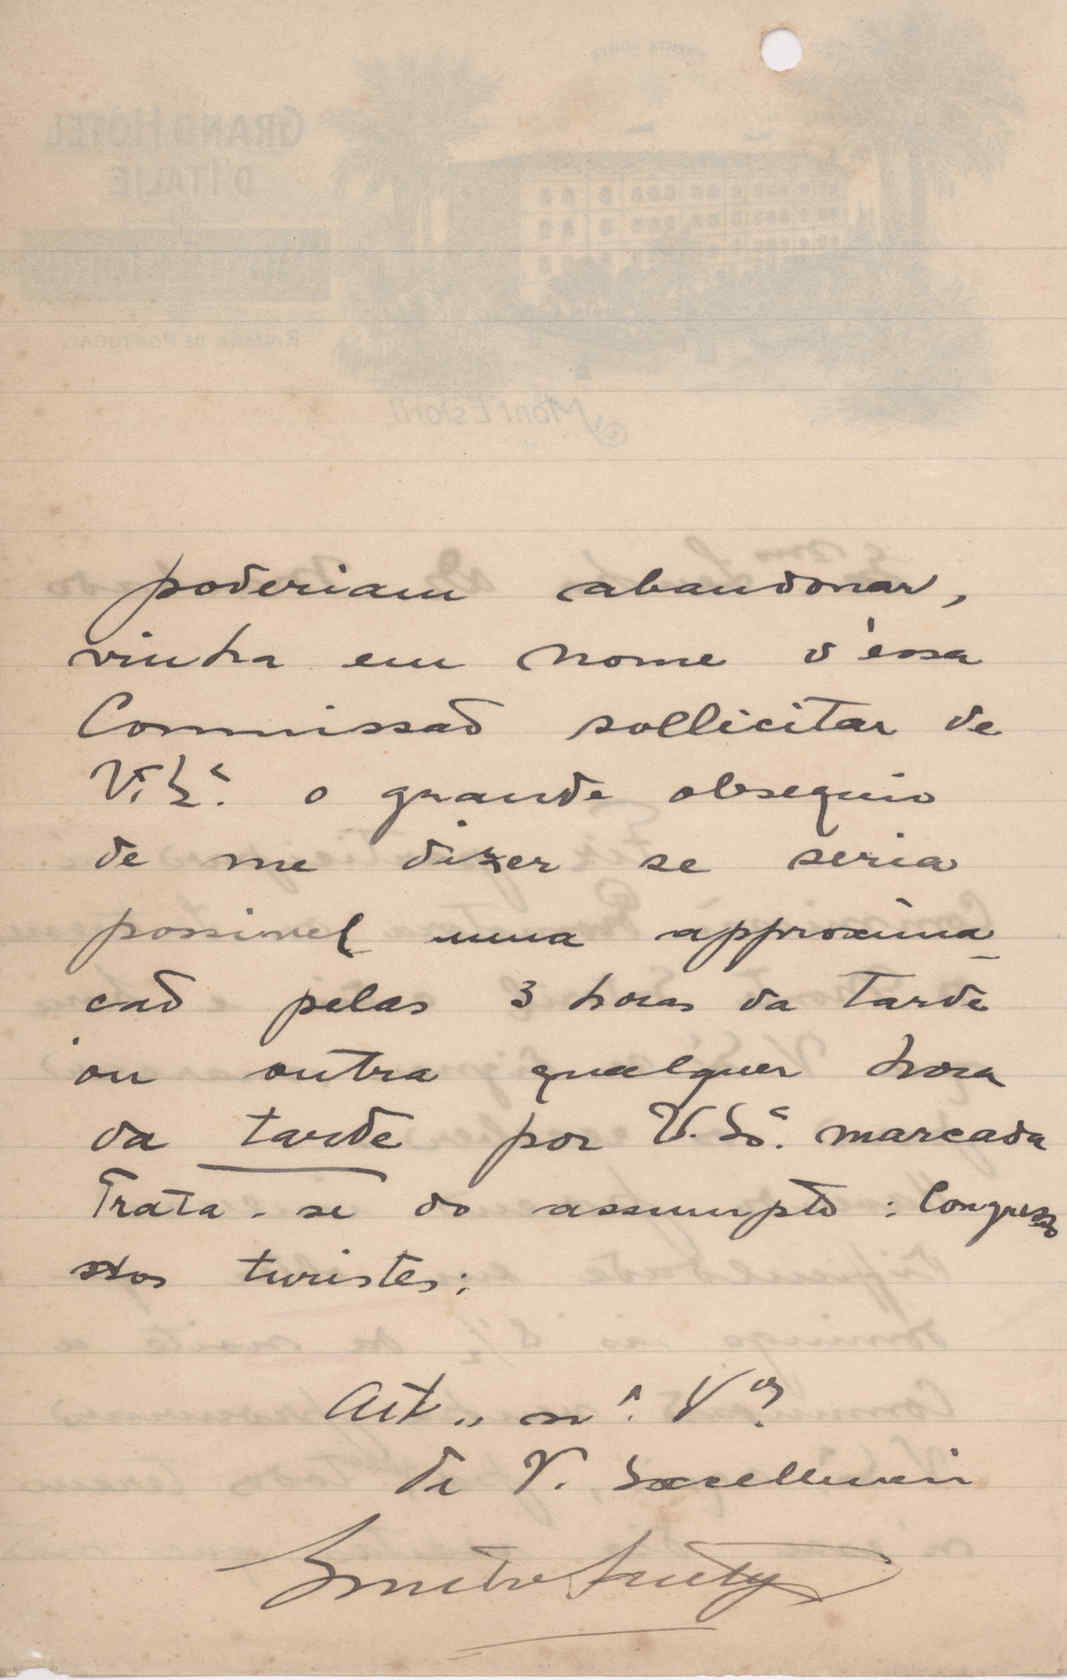 GRAND HOTEL
D'ITALIE
RIVIERA DE PORTUGAL
Mont'Estoril
poderiam abandonar,
vinha em nome d'essa
Commissaõ sollicitar de
V. Sª. o grande obsequio
de me dizer se seria
possivel uma approxima
caõ pelas 3 horas da tarde
ou outra qualquer hora
da tarde por V. Sª. marcada
Trata-se do assumpto: Congresso
dos turistes:
Att.
de V. Excellencia